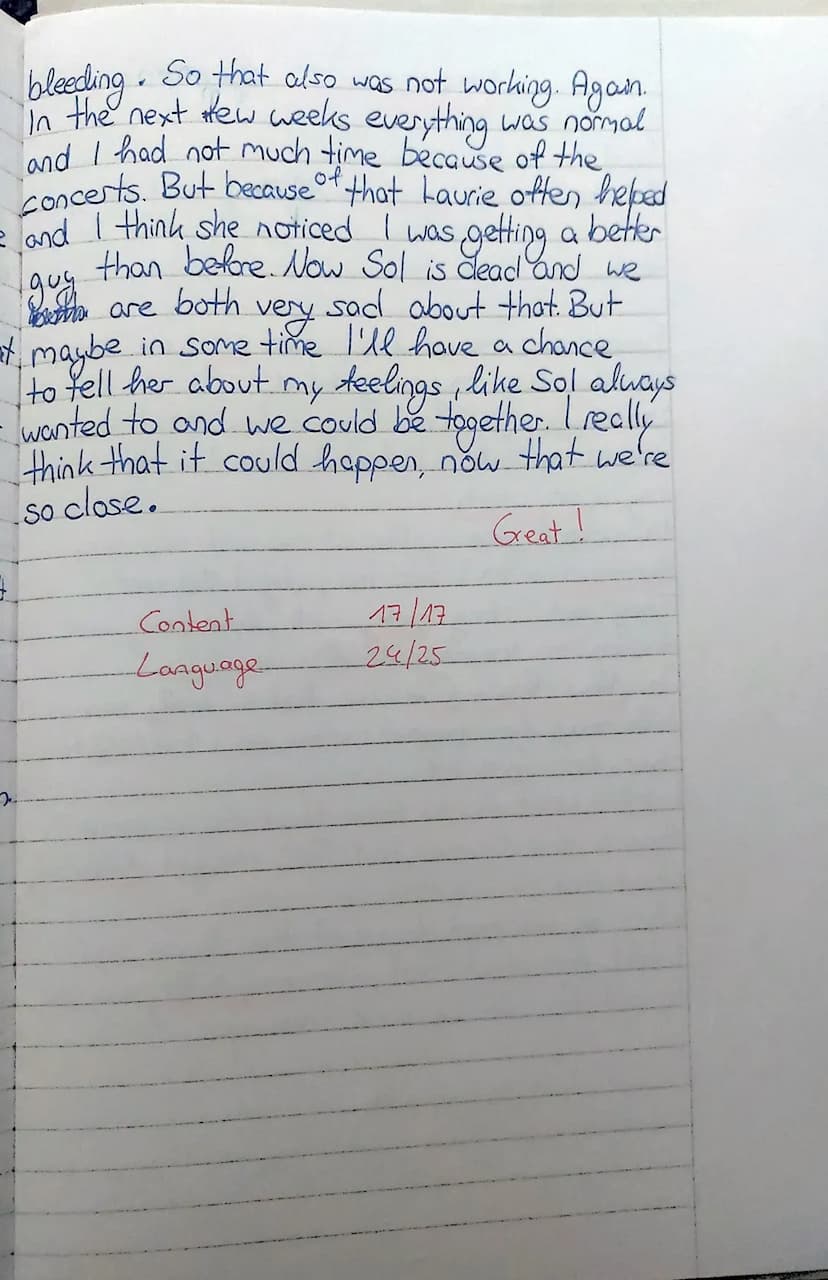 bleeding. So that also was not working. Again.
In the next few weeks everything was normal
and I had not much time because of the
concerts. But because of that Laurie often helped
and I think she noticed I was getting a better
guy than before. Now Sol is dead and we
are both very sad about that. But
maybe in some time I'll have a chance
to tell her about my feelings, like Sol always
wanted to and we could be together. I really
think that it could happen, now that we're
so close.
Great!
Content 17/17
Language 24/25